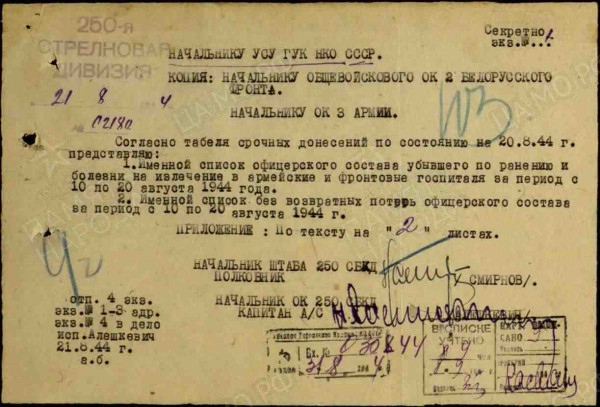 250-я
СТРЕЛКОВАЯ
ДИВИЗИЯ
21 8 4
Секретно
экз.№
НАЧАЛЬНИКУ УСУ ГУК НКО СССР.
КОПИЯ: НАЧАЛЬНИКУ ОБЩЕВОЙСКОВОГО ОК 2 БЕЛОРУССКОГО
ФРОНТА.
НАЧАЛЬНИКУ ОК 3 АРМИИ.
Согласно табеля срочных донесений по состоянию на 20.8.44 г.
представляю:
1.Именной список офицерского состава убывшего по ранению и
болезни на излечение в армейские и фронтовые госпиталя за период с
10 по 20 августа 1944 года.
2. Именной список без возвратных потерь офицерского состава
за период с 10 по 20 августа 1944 г.
ПРИЛОЖЕНИЕ : По тексту на "2" листах.
НАЧАЛЬНИК ШТАБА 250 СБКД
ПОЛКОВНИК /СМИРНОВ/.
НАЧАЛЬНИК ОК 250 СБКД
КАПИТАН А/С
отп. 4 экз.
экз.№ 1-3 адр.
экз.№ 4 в дело
исп.Алашкевич
21.8.44 г.
а.б.
Вх. №
В СПИСКЕ
УЧТЕНО